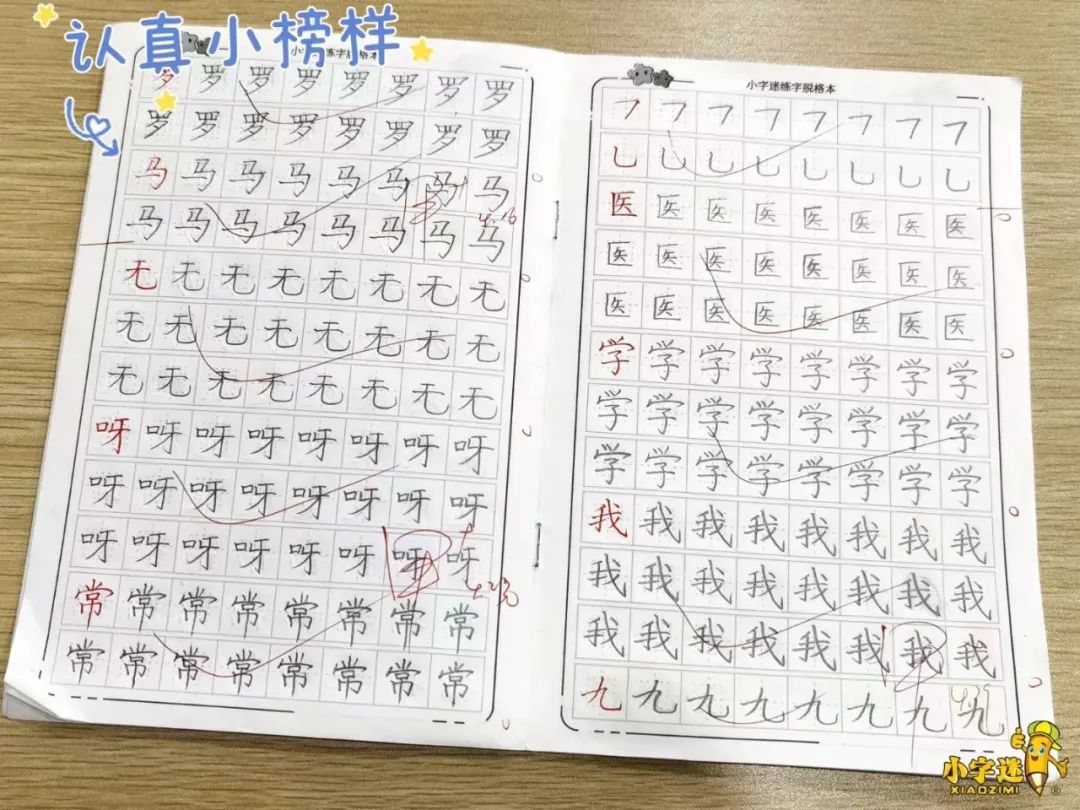 认真小榜样
小字迷练字脱格本
罗罗罗罗罗罗罗罗
罗罗罗罗罗罗罗罗
马马马马马马马马
4.16
马马马马马马马马
无无无无无无无无
无无无无无无无无
无无无无无无无无
呀呀呀呀呀呀呀呀
呀呀呀呀呀呀呀呀
呀呀呀呀呀呀呀呀
常常常常常常常常
常常常常常常常常
小字迷练字脱格本
㇇㇇㇇㇇㇇㇇㇇㇇
乚乚乚乚乚乚乚乚
医医医医医医医医
医医医医医医医医
医医医医医医医医
学学学学学学学学
学学学学学学学学
学学学学学学学学
我我我我我我我我
我我我我我我我我
我我我我我我我我
九九九九九九九九
小字迷
XIAOZIMI